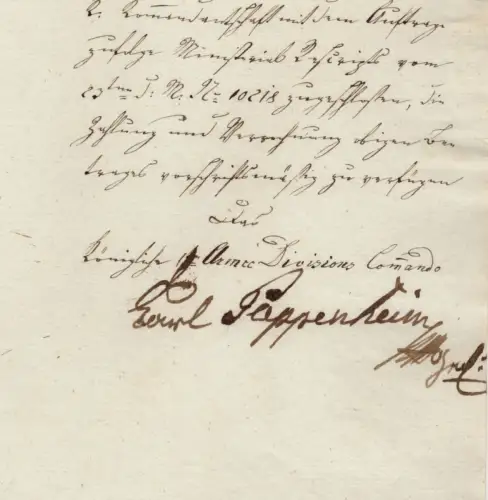 K. Kommandantschaft mit dem Auftrage
zufolge Ministerial Rescripts vom
23ten d. M. No 10218 zugeschlossen, die
Zahlung und Verrechnung obigen Be-
trages vorschriftsmäßig zu verfügen
Das
Königliche Armee Divisions Commando
Carl Pappenheim